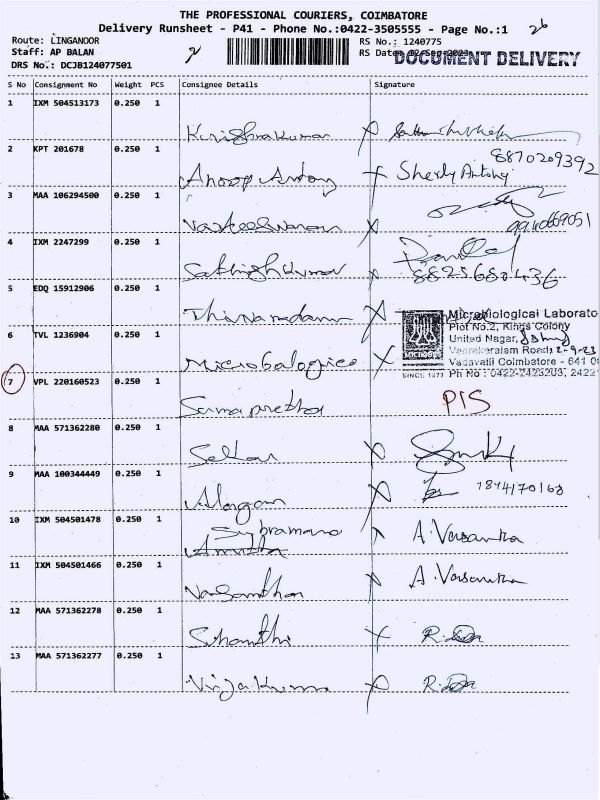 THE PROFESSIONAL COURIERS, COIMBATORE
Delivery Runsheet - P41 - Phone No.:0422-3505555 - Page No.:1 26
Route: LINGANOOR RS No.: 1240775
Staff: AP BALAN RS Date: 12-Sep-2023 DOCUMENT DELIVERY
DRS No.: DCJB124077501
S No Consignment No Weight PCS Consignee Details Signature
1 IXM 504513173 0.250 1
Krishnakumar X
2 KPT 201678 0.250 1 8870209392
Anoop Antony Sherly Antony
3 MAA 106294500 0.250 1
X 9940669051
4 IXM 2247299 0.250 1
Sathishkumar X 8825680436
5 EDQ 15912906 0.250 1
X Microbiological Laborato
Plot No.2, Kings Colony
6 TVL 1236904 0.250 1 United Nagar,
Veerakeralam Road, 2-9-23
X Vadavalli Coimbatore - 641 0
7 VPL 220160523 0.250 1 SINCE 1977 Ph No : 0422-2423203, 2422
PIS
8 MAA 571362280 0.250 1
X
9 MAA 100344449 0.250 1
X 7894170163
10 IXM 504501478 0.250 1
A. Vasantha
11 IXM 504501466 0.250 1
Vasanthan X A. Vasantha
12 MAA 571362278 0.250 1
X
13 MAA 571362277 0.250 1
Vijakumar X